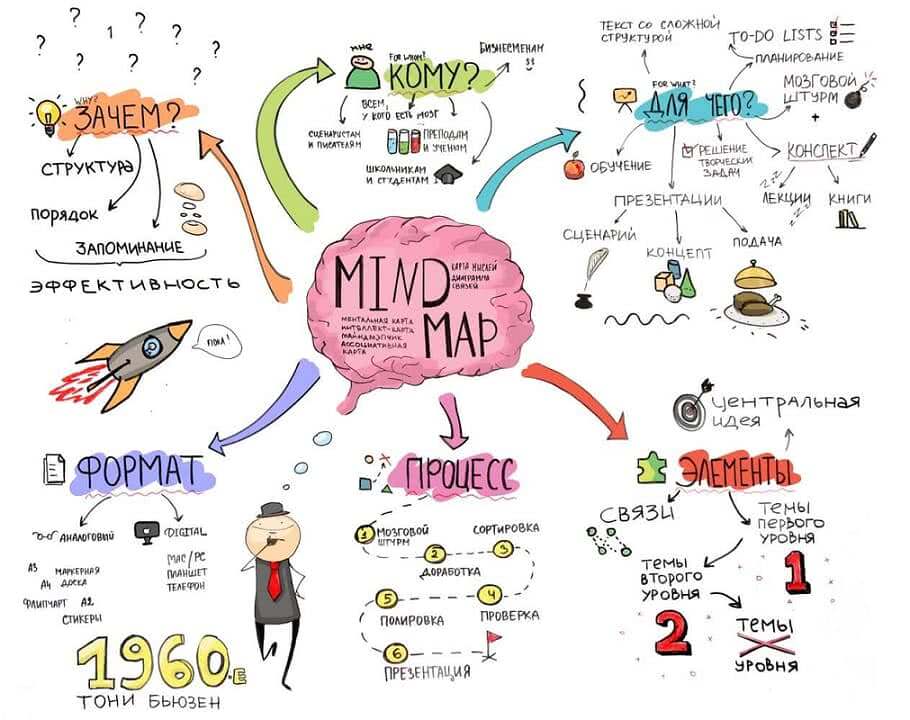 ? ? ? 1 ? ? ? ? ?
WHY?
ЗАЧЕМ?
СТРУКТУРА
ПОРЯДОК
ЗАПОМИНАНИЕ
ЭФФЕКТИВНОСТЬ
ПОКА!
МНЕ
FOR WHOM?
КОМУ?
БИЗНЕСМЕНАМ
$$
ВСЕМ,
У КОГО ЕСТЬ МОЗГ
СЦЕНАРИСТАМ
И ПИСАТЕЛЯМ
ПРЕПОДАМ
И УЧЕНЫМ
ШКОЛЬНИКАМ
И СТУДЕНТАМ
ТЕКСТ СО СЛОЖНОЙ
СТРУКТУРОЙ
TO-DO LISTS
ПЛАНИРОВАНИЕ
FOR WHAT?
ДЛЯ ЧЕГО?
МОЗГОВОЙ
ШТУРМ
+
КОНСПЕКТ
ОБУЧЕНИЕ
РЕШЕНИЕ
ТВОРЧЕСКИХ
ЗАДАЧ
ZZZ
ЛЕКЦИИ
ZZZ
КНИГИ
ПРЕЗЕНТАЦИИ
СЦЕНАРИЙ
КОНЦЕПТ
ПОДАЧА
MIND
MAP
КАРТА МЫСЛЕЙ
ДИАГРАММА
СВЯЗЕЙ
МЕНТАЛЬНАЯ КАРТА
ИНТЕЛЛЕКТ-КАРТА
МАЙНДМЭПЧИК
АССОЦИАТИВНАЯ
КАРТА
ФОРМАТ
АНАЛОГОВЫЙ
DIGITAL
А3
МАРКЕРНАЯ
ДОСКА
А4
ФЛИПЧАРТ А2
СТИКЕРЫ
MAC/PC
ПЛАНШЕТ
ТЕЛЕФОН
1960.Е
ТОНИ БЬЮЗЕН
ПРОЦЕСС
1 МОЗГОВОЙ
ШТУРМ
2
ДОРАБОТКА
СОРТИРОВКА
3
4
ПРОВЕРКА
5
ПОЛИРОВКА
6
ПРЕЗЕНТАЦИЯ
ЦЕНТРАЛЬНАЯ
ИДЕЯ
ЭЛЕМЕНТЫ
СВЯЗИ
ТЕМЫ
ПЕРВОГО
УРОВНЯ
1
ТЕМЫ
ВТОРОГО
УРОВНЯ
2
ТЕМЫ
X
УРОВНЯ